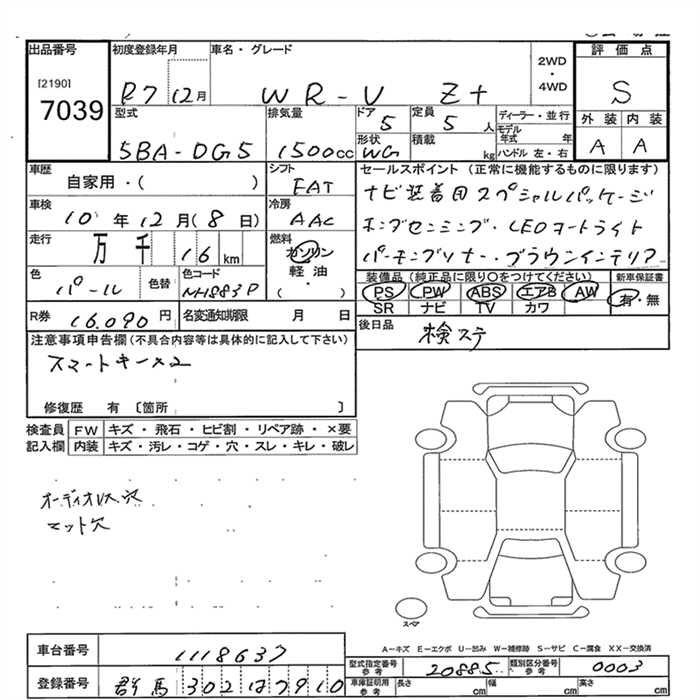 出品番号 初度登録年月 車名・グレード 2WD・4WD 評価点
[2190]
7039 R7 12月 WR-V Z+ S
型式 排気量 ドア 定員 ディーラー・並行 外装 内装
5BA-DG5 1500cc 5 5人 モデル年式 年 A A
形状 積載 ハンドル 左・右
WG kg
車歴 シフト セールスポイント(正常に機能するものに限ります)
自家用・( ) FAT ナビ装着用スペシャルパッケージ
車検 冷房 ホンダセンシング・LEDオートライト
10年 12月(8日) AAC パーキングソナー・ブラウンインテリア
走行 燃料
万 千 16 km ガソリン 軽油 ( ・ )
色 色替 色コード 装備品(純正品に限り○をつけてください) 新車保証書
パール NH883P PS PW ABS エアB AW 有・無
SR ナビ TV カワ
R券 16,090円 名変通知期限 月 日 後日品
検ステ
注意事項申告欄(不具合内容等は具体的に記入して下さい)
スマートキー×2
修復歴 有 〔箇所 〕
検査員 FW キズ・飛石・ヒビ割・リペア跡・×要
記入欄 内装 キズ・汚レ・コゲ・穴・スレ・キレ・破レ
オーディオレス穴
マット穴
スペア
A－キズ E－エクボ U－凹み W－補修跡 S－サビ C－腐食 XX－交換済
車台番号 1118637
型式指定番号 参考 20885 類別区分番号 参考 0003
登録番号 群馬 302 は7910
車庫証明用 参考 長さ cm 幅 cm 高さ cm